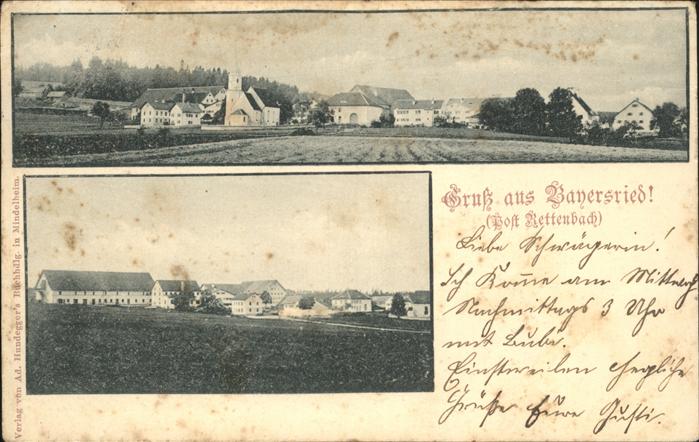 Gruß aus Bayersried!
(Post Rettenbach)
Liebe Schwägerin!
Ich komme am Mittwoch
Nachmittags 3 Uhr
mit Bube.
Einstweilen
Grüße Eure Gusti.
Verlag von Ad. Hundegger's Buchhdlg. in Mindelheim.